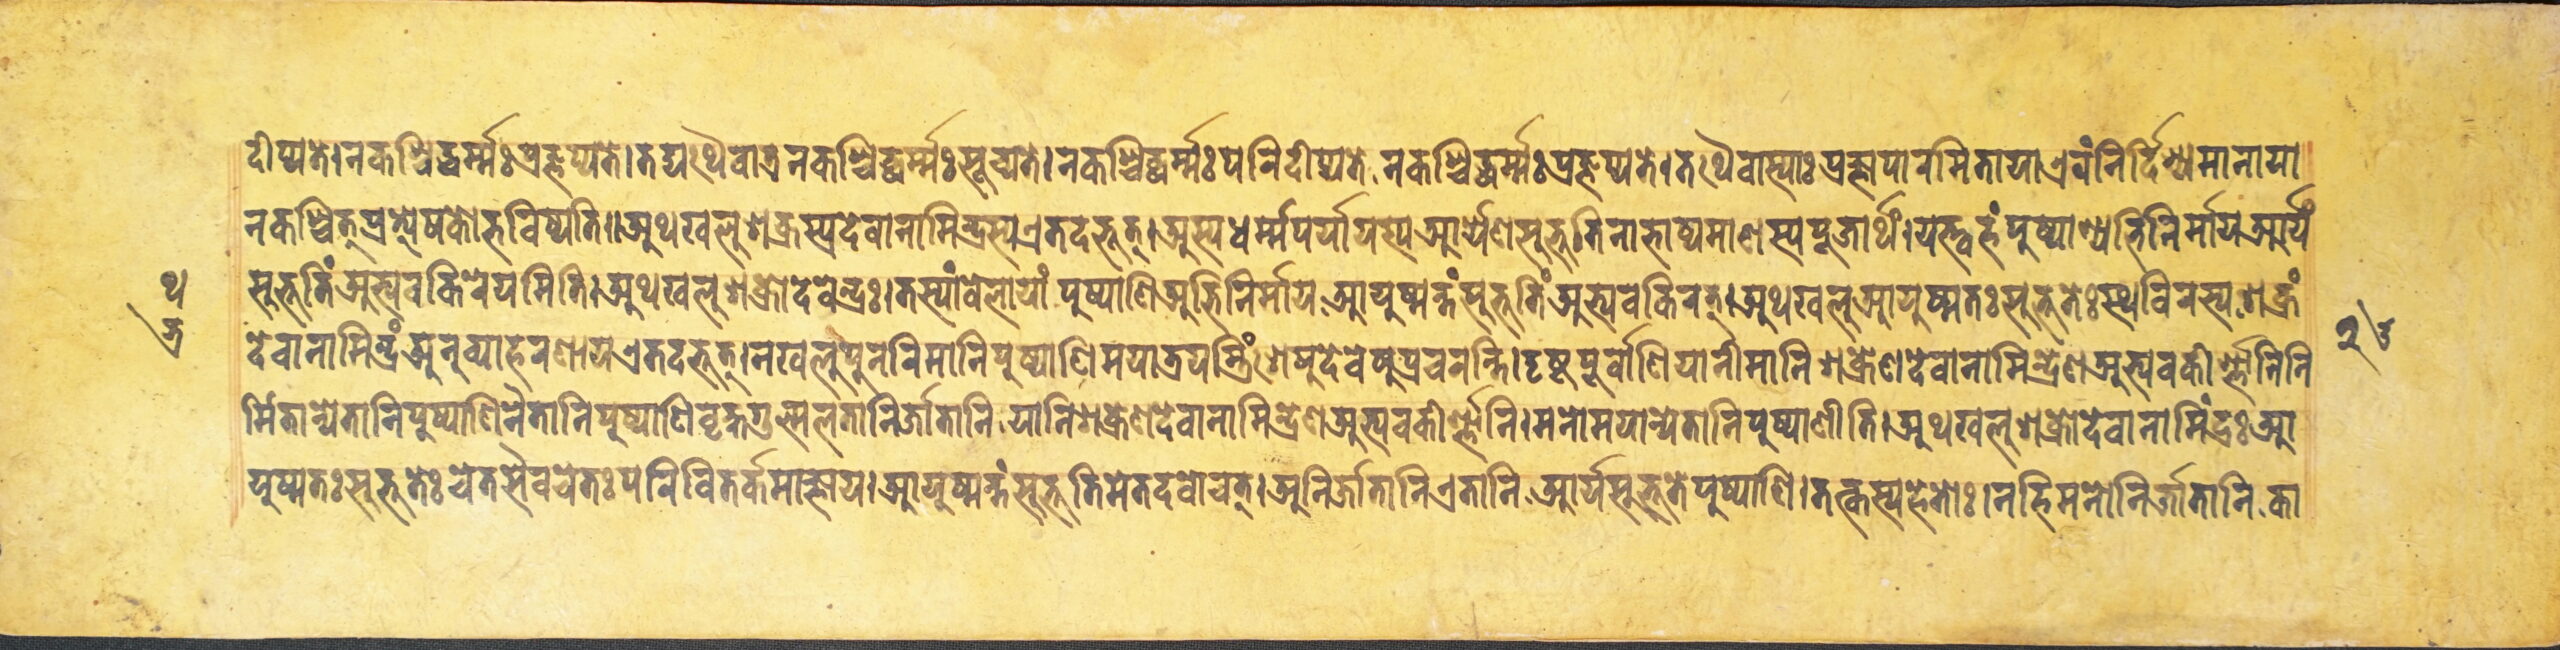 दीप्यते।नकश्चिद्धर्म्मःप्रज्ञप्यते।तद्यथैवात्रनकश्चिद्धर्म्मःसूच्यते।नकश्चिद्धर्म्मःपरिदीप्यते.नकश्चिद्धर्म्मःप्रज्ञप्यते।तथैवास्याःप्रज्ञापारमितायाएवंनिर्द्दिश्यमानाया
नकश्चित्प्रत्येषकोभविष्यति॥अथखलुशक्रस्यदेवानामिन्द्रस्यएतदभूत्।अस्यधर्म्मपर्यायस्यआर्येणसुभूतिनाभाष्यमाणस्यपूजार्थं।यत्त्वहंपुष्पाण्यभिनिर्मायआर्यं
सुभूतिंअभ्यवकिरेयमिति।अथखलुशक्रोदेवेन्द्रः।तस्यांवेलायांपुष्पाणिअभिनिर्माय.आयुष्मन्तंसुभूतिंअभ्यवकिरत्।अथखलुआयुष्मतःसुभूतेःस्थविरस्यशक्रं
देवानामिन्द्रंअनुव्याहरणायएतदभूत्।नखलुपुनरिमानिपुष्पाणिमयात्रयस्त्रिंशेषुदेवेषुप्रचरन्ति।दृष्टपूर्वाणियानीमानिशक्रेणदेवानामिन्द्रेणअभ्यवकीर्ण्णानिनि
र्मितान्येतानिपुष्पाणिनैतानिपुष्पाणिवृक्षगुल्मलतानिर्जातानि.यानिशक्रेणदेवानामिन्द्रेणअभ्यवकीर्ण्णानि।मनोमयान्येतानिपुष्पाणीति।अथखलुशक्रोदेवानामिंद्रःआ
युष्मतःसुभूतेःचेतसैवचेतःपरिवितर्कमाज्ञाय।आयुष्मन्तंसुभूतिमेतदवोचत्।अनिर्जातानिएतानि.आर्यसुभूतेपुष्पाणि।तत्कस्यहेतोः।नहिमनोनिर्जातानि.का